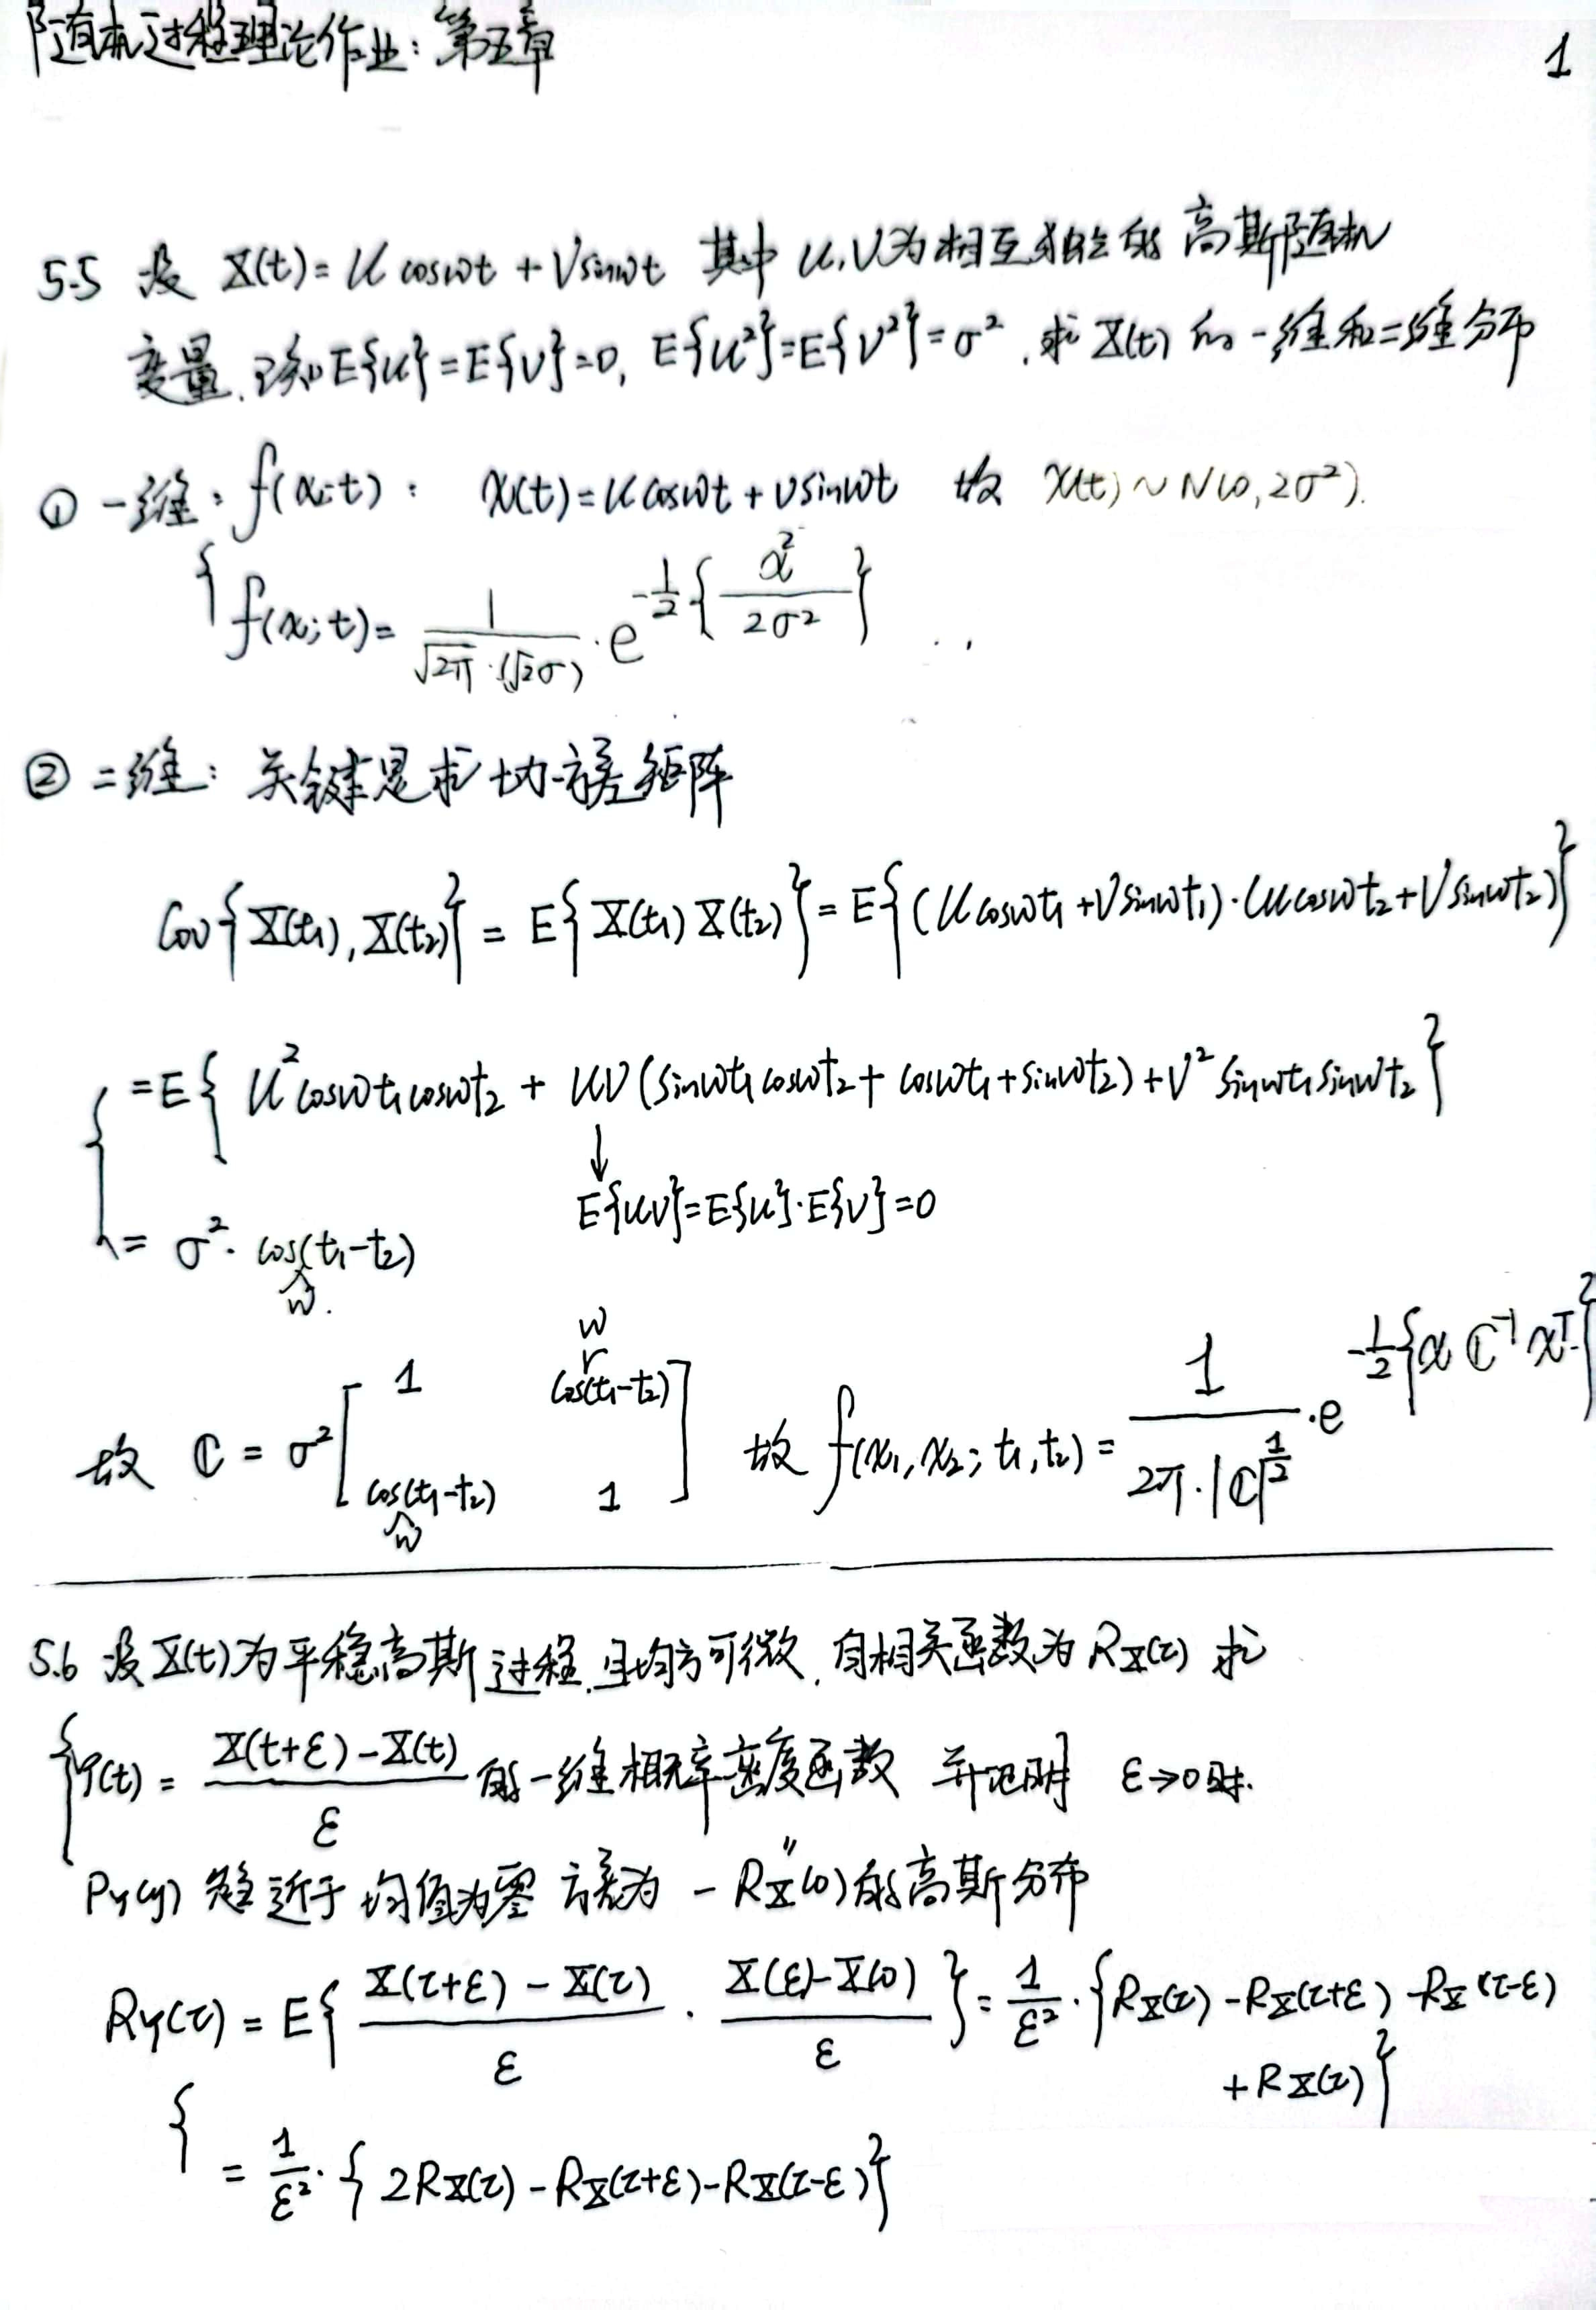 随机过程理论作业：第五章
1
5.5 设 X(t)=U cosωt + V sinωt 其中 U,V为相互独立的 高斯随机
变量, 已知 E{U}=E{V}=0, E{U²}=E{V²}=σ², 求 X(t) 的一维和二维分布
① 一维: f(x;t): X(t)=U cosωt + V sinωt 故 X(t)~N(0,2σ²).
f(x;t)= 1/(√2π·(√2σ)) · e^(-1/2{x²/2σ²})
② 二维: 关键是求协方差矩阵
Cov{X(t₁),X(t₂)} = E{X(t₁)X(t₂)} = E{(U cosωt₁+V sinωt₁)·(U cosωt₂+V sinωt₂)}
=E{U² cosωt₁ cosωt₂ + UV(sinωt₁ cosωt₂ + cosωt₁ + sinωt₂) + V² sinωt₁ sinωt₂}
↓
E{UV}=E{U}·E{V}=0
= σ²· cosω(t₁-t₂)
故 C = σ² [1 cosω(t₁-t₂) ; cosω(t₁-t₂) 1] 故 f(x₁,x₂;t₁,t₂) = 1/(2π·|C|^(1/2)) · e^(-1/2{x C⁻¹ xᵀ})
5.6 设 X(t)为平稳高斯过程,且均方可微, 自相关函数为 R_X(τ) 求
Y(t) = (X(t+ε)-X(t))/ε 的一维概率密度函数 并证明 ε→0时.
P_Y(y) 趋近于 均值为零 方差为 -R_X''(0) 的高斯分布
R_Y(τ) = E{(X(τ+ε)-X(τ))/ε · (X(ε)-X(0))/ε} = 1/ε² · {R_X(τ) - R_X(τ+ε) - R_X(τ-ε)
+ R_X(τ)}
= 1/ε² · {2R_X(τ) - R_X(τ+ε) - R_X(τ-ε)}